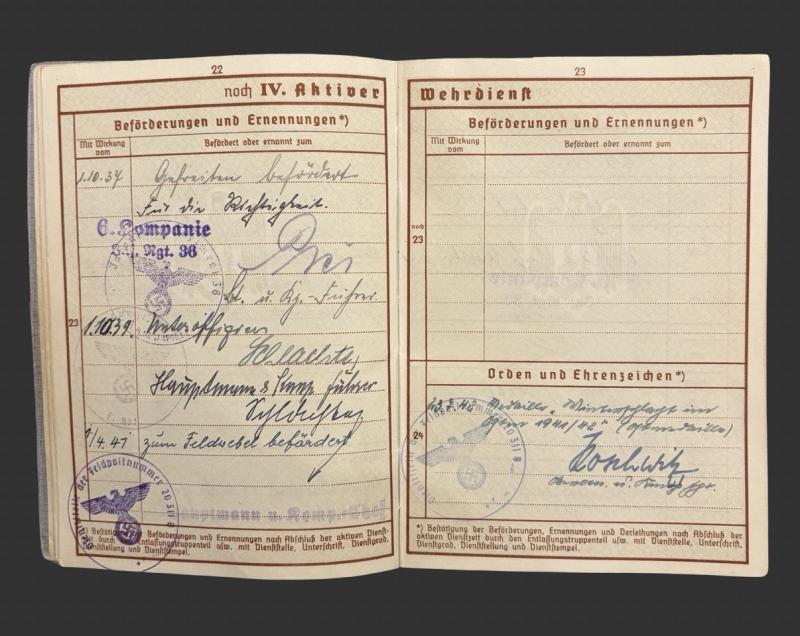 22
noch IV. Aktiver
Beförderungen und Ernennungen*)
Mit Wirkung vom
Befördert oder ernannt zum
1.10.37 Gefreiten befördert
Für die Richtigkeit.
6. Kompanie
Inf. Rgt. 36
Lt. u. Kp.-Führer
23
1.10.39. Unteroffizier
Hauptmann u. Komp. Führer
1/4.41 zum Feldwebel befördert
Hauptmann u. Komp.-Chef
Dienststelle der Feldpostnummer 20311
*) Bestätigung der Beförderungen, Ernennungen und Verleihungen nach Abschluß der aktiven Dienstzeit durch den Entlassungstruppenteil usw. mit Dienststelle, Unterschrift, Dienstgrad, Dienststellung und Dienststempel.
23
Wehrdienst
Beförderungen und Ernennungen*)
Mit Wirkung vom
Befördert oder ernannt zum
noch
23
Orden und Ehrenzeichen*)
Medaille "Winterschlacht im
Osten 1941/42" (Ostmedaille)
24
Dienststelle der Feldpostnummer 20311
*) Bestätigung der Beförderungen, Ernennungen und Verleihungen nach Abschluß der
aktiven Dienstzeit durch den Entlassungstruppenteil usw. mit Dienststelle, Unterschrift,
Dienstgrad, Dienststellung und Dienststempel.